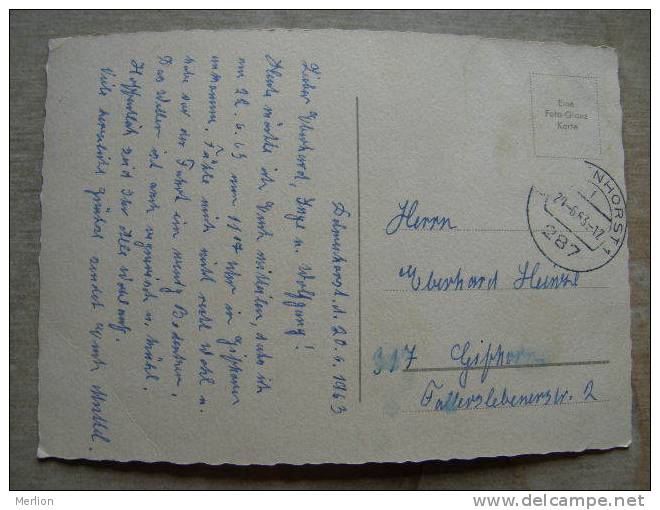 Delmenhorst, d. 20.6.1963
Lieber Eberhard, Inge u. Wolfgang!
Heute möchte ich Euch mitteilen, daß ich
am 22.6.63 um 11 07 Uhr in Gifhorn
ankomme. Fühle mich nicht recht wohl u.
habe vor der Fahrt ein wenig Bedenken.
Das Wetter ist auch regnerisch u. kühl.
Hoffentlich seid Ihr alle wohlauf.
Viele herzliche Grüße sendet Euch
Eine
Foto-Glanz
Karte
NHORST 1
-6.63-17
287
Herrn
Eberhard
317 Gifhorn
Fallerslebenerstr. 2
Merlion
www.delcampe.net